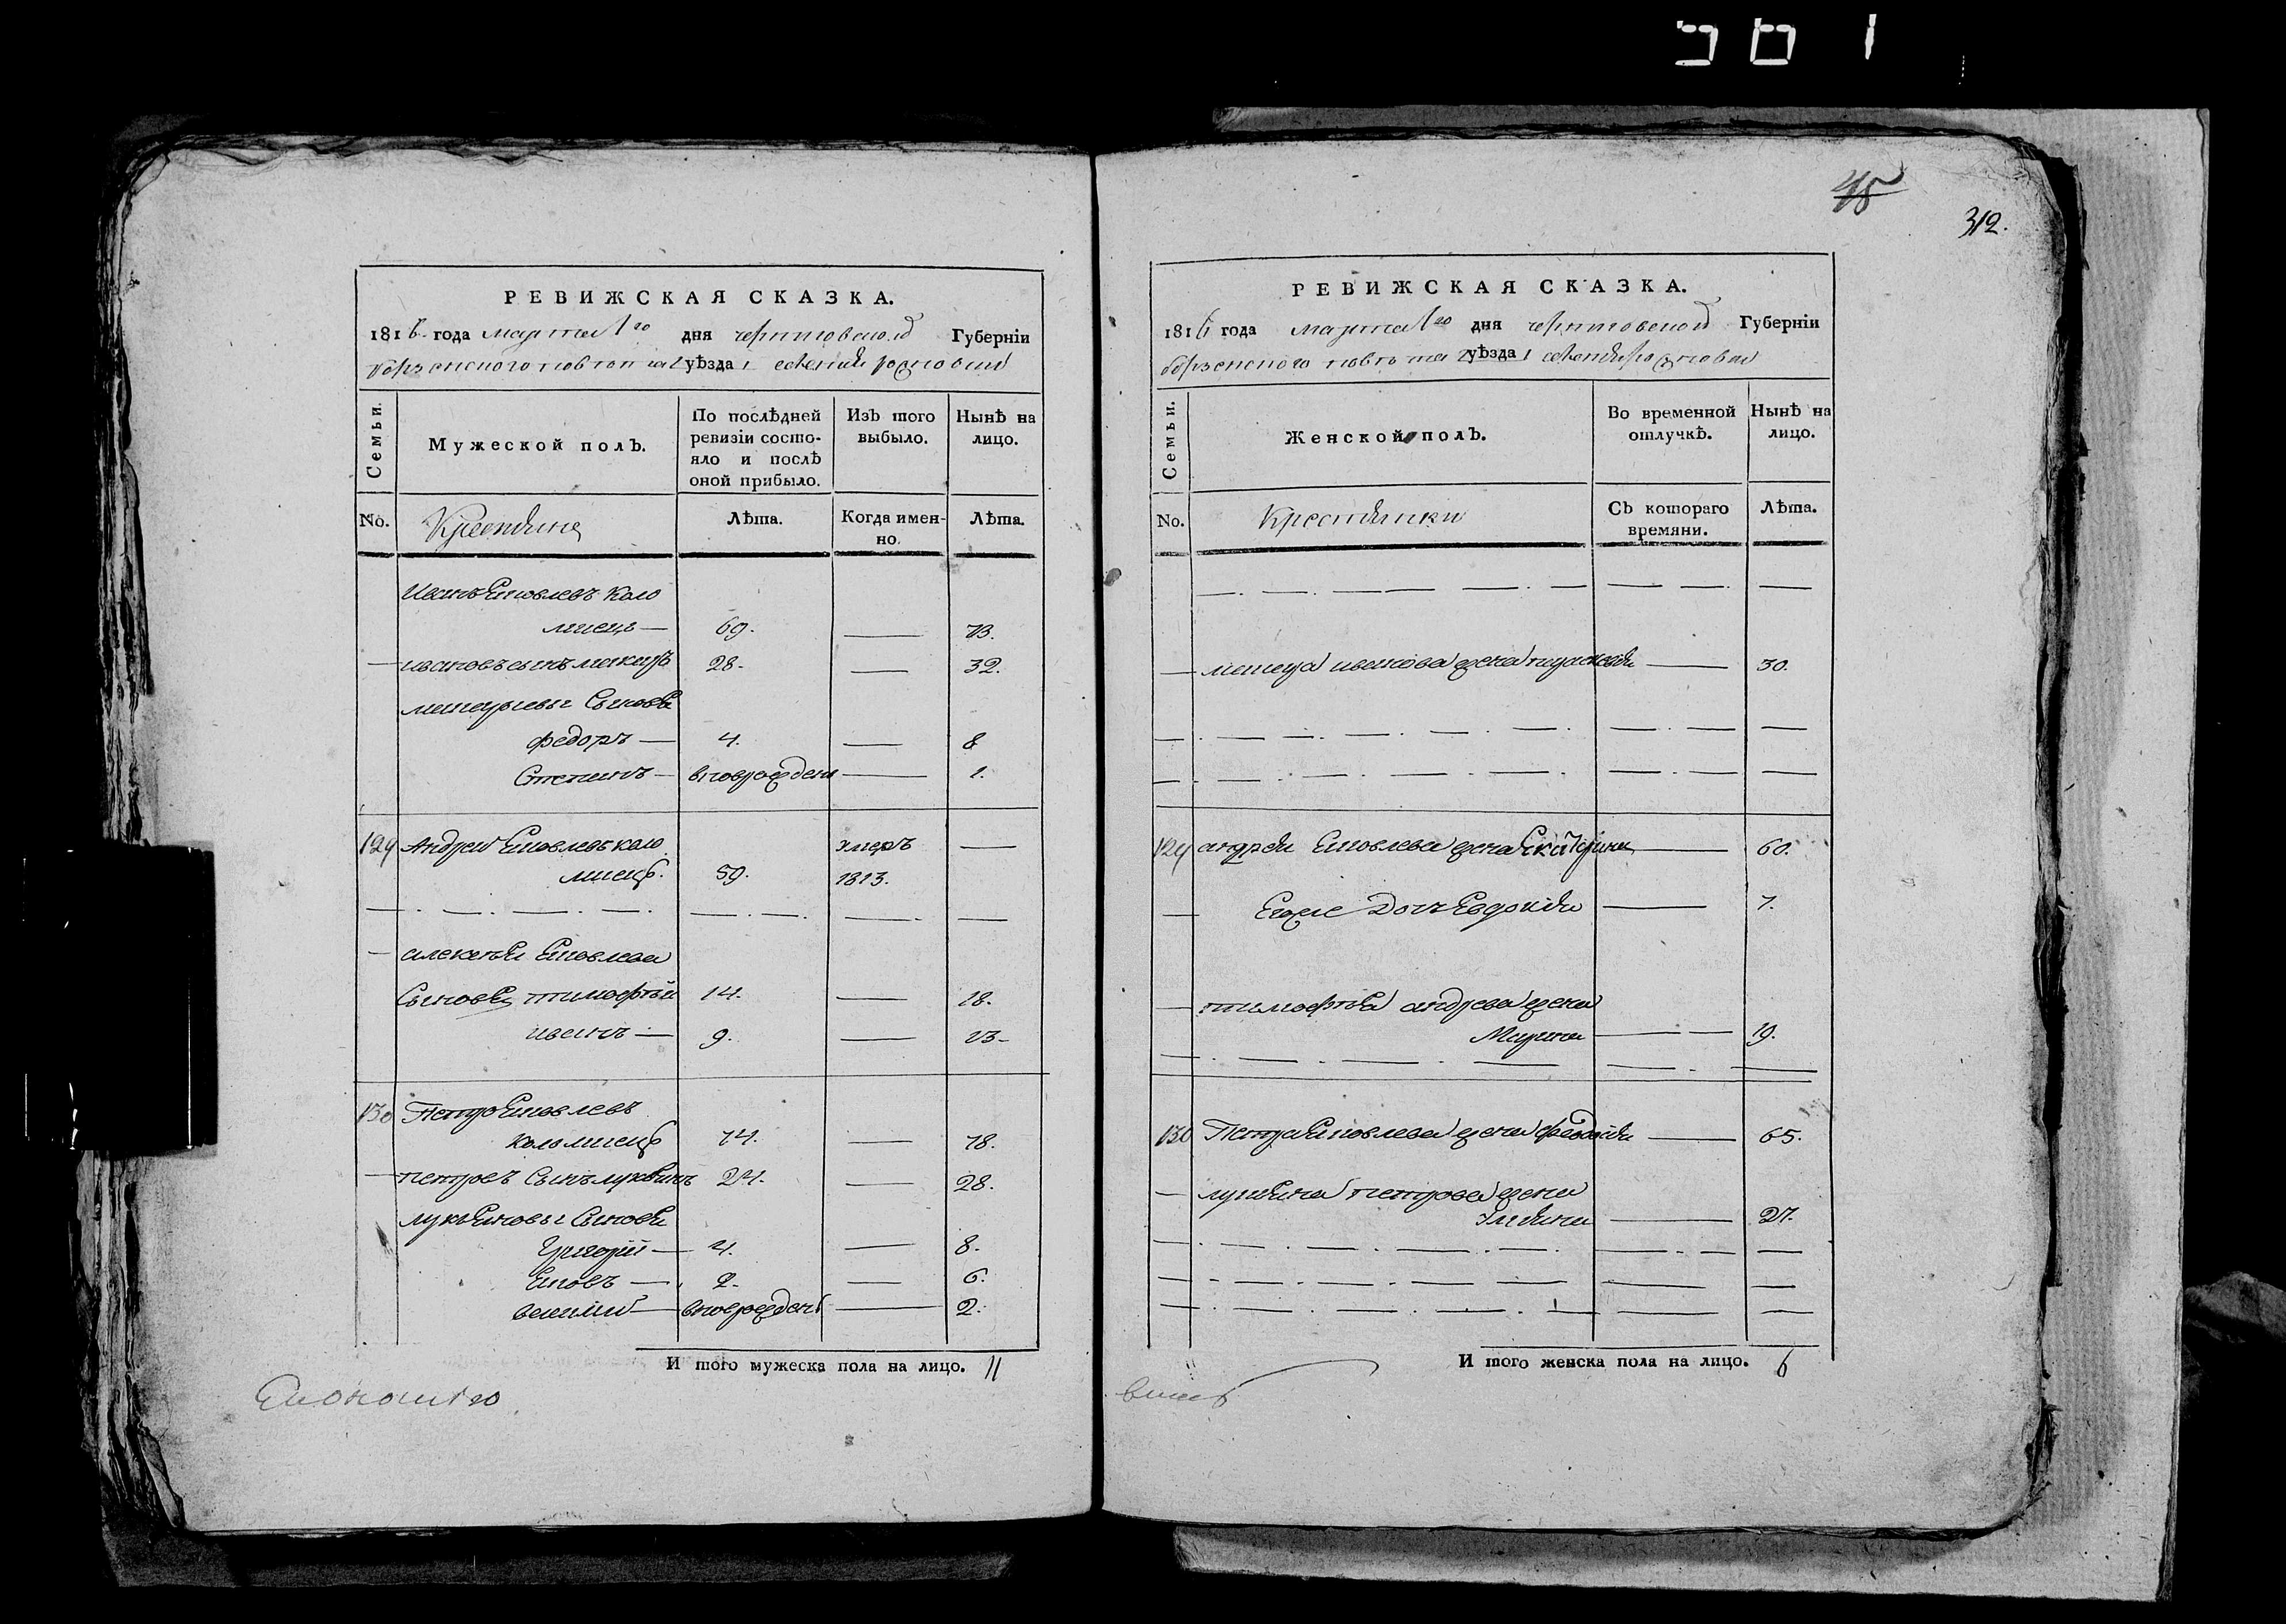 45
312.
РЕВИЖСКАЯ СКАЗКА.
1816 года марта 1го дня черниговской Губерніи
борзенского повета уѣзда селения
Семьи.
Мужеской полъ.
По послѣдней ревизіи состояло и послѣ оной прибыло.
Изъ того выбыло.
Нынѣ на лицо.
No.
Крестяне
Лѣта.
Когда именно.
Лѣта.
Иванъ Яковлевъ Коло
миецъ — 69. — 73.
— ивановъ сынъ 28. — 32.
Сыновя
Федоръ — 4. — 8
Степанъ — вноврожден — 1.
129 Андрей Яковлевъ коло умеръ —
миецъ. 59. 1813.
— алексея Яковлева
Сыновя тимофѣй 14. — 18.
иванъ — 9. — 13 —
130 Петро Яковлевъ
коломиецъ 74. — 78.
— петровъ Сынъ лукянъ 24. — 28.
лукяновы Сыновя
Григорій — 4. — 8.
Яковъ — 2. — 6.
василий — вноврожденъ — 2.
И того мужеска пола на лицо. 11
РЕВИЖСКАЯ СКАЗКА.
1816 года марта 1го дня черниговской Губерніи
борзенского повета уѣзда селения
Семьи.
Женской полъ.
Во временной отлучкѣ.
Нынѣ на лицо.
No.
Крестянки
Съ котораго времяни.
Лѣта.
— иванова жена — 30.
129 андрея Яковлева жена Екатерина — 60.
— Егоже Дочъ Евдокия — 7.
— тимофѣя андрева жена
Марина — 19.
130 Петра Яковлева жена — 65.
— лукяна петрова жена
Улияна — 27.
И того женска пола на лицо. 6